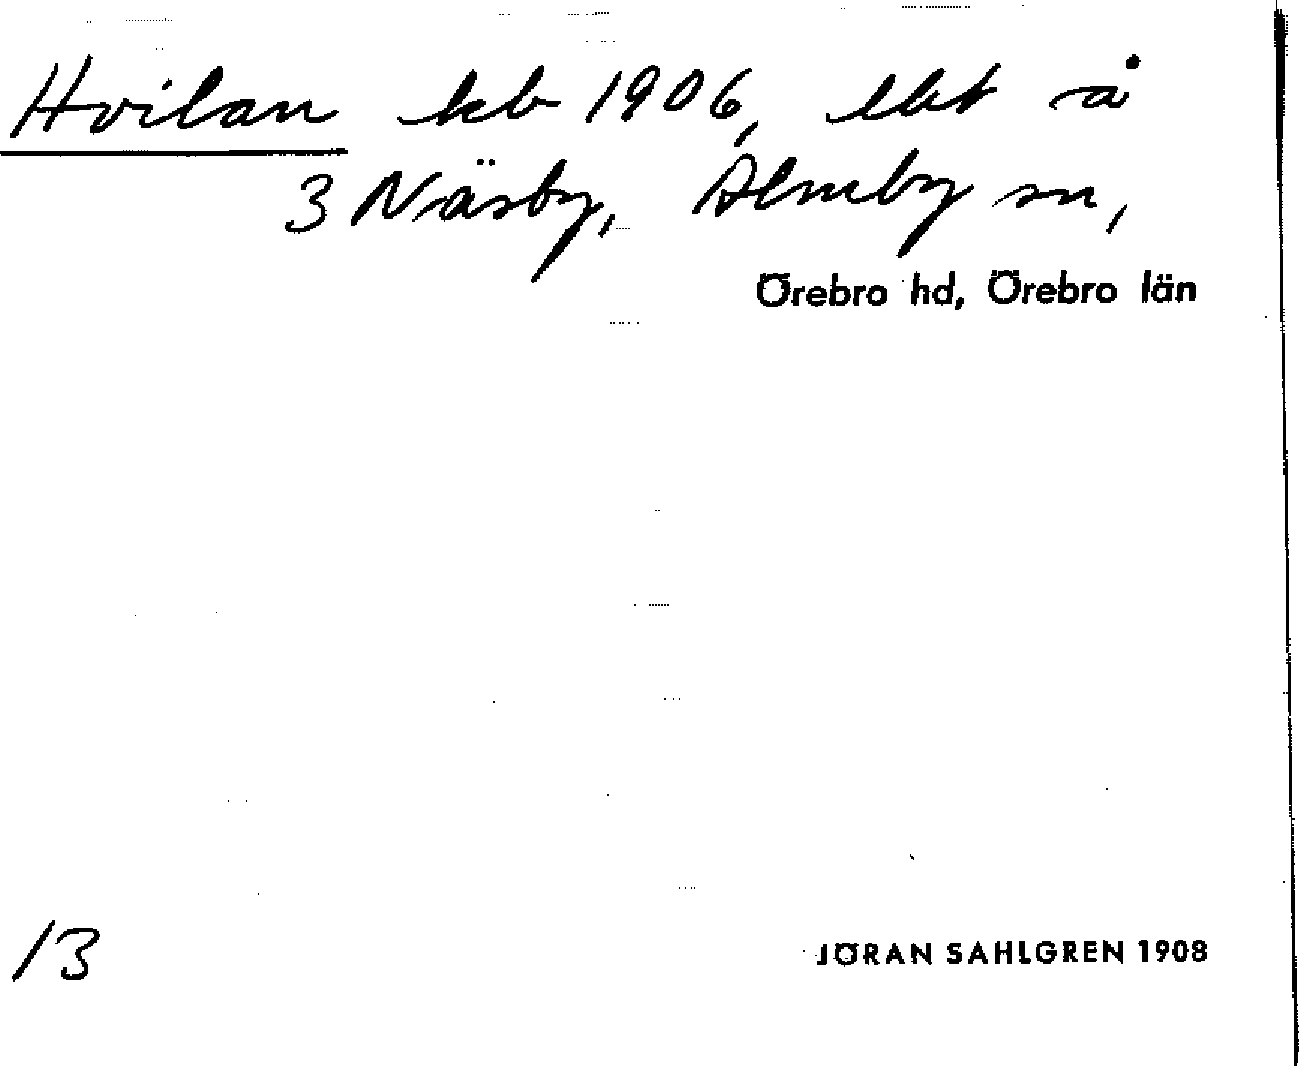 Hvilan kb 1906, lht å
3 Näsby, Almby sn,
Örebro hd, Örebro län
13
JÖRAN SAHLGREN 1908